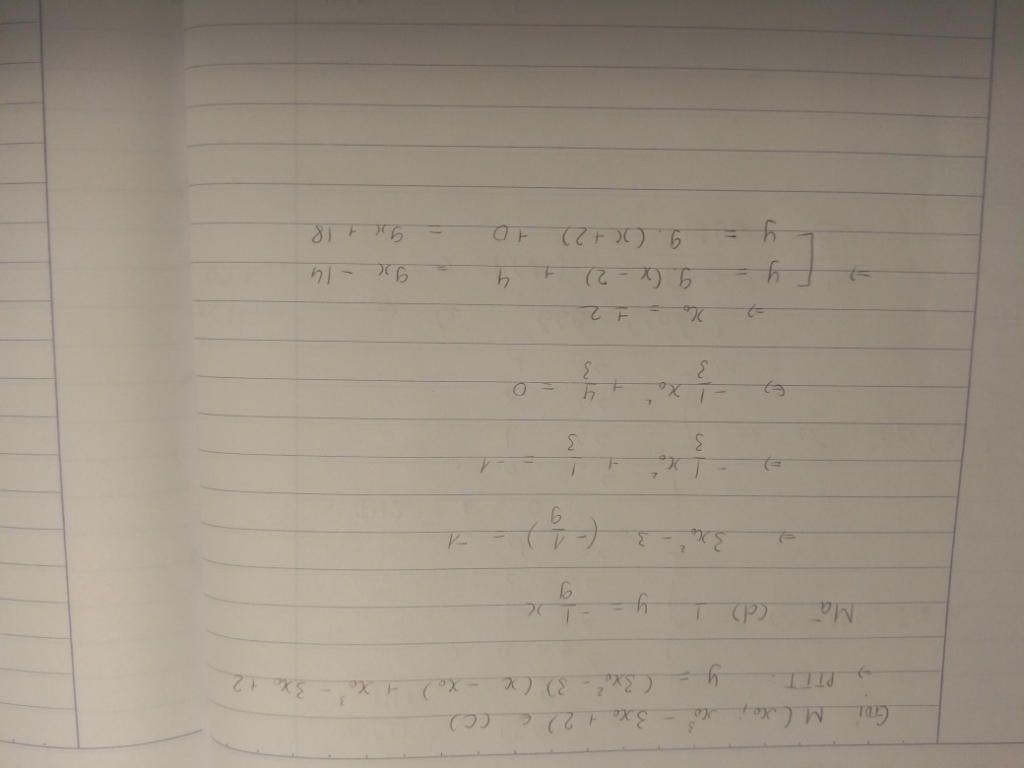 Gọi M (x₀; x₀³ - 3x₀ + 2) ∈ (C)
=> PTTT. y = (3x₀² - 3) (x - x₀) + x₀³ - 3x₀ + 2
Mà (d) ⊥ y = -1/9 x
=> 3x₀² - 3. (-1/9) = -1
=> -1/3 x₀² + 1/3 = -1
<=> -1/3 x₀² + 4/3 = 0
=> x₀ = ± 2
=> [ y = 9(x - 2) + 4 = 9x - 14
y = 9. (x + 2) + 0 = 9x + 18